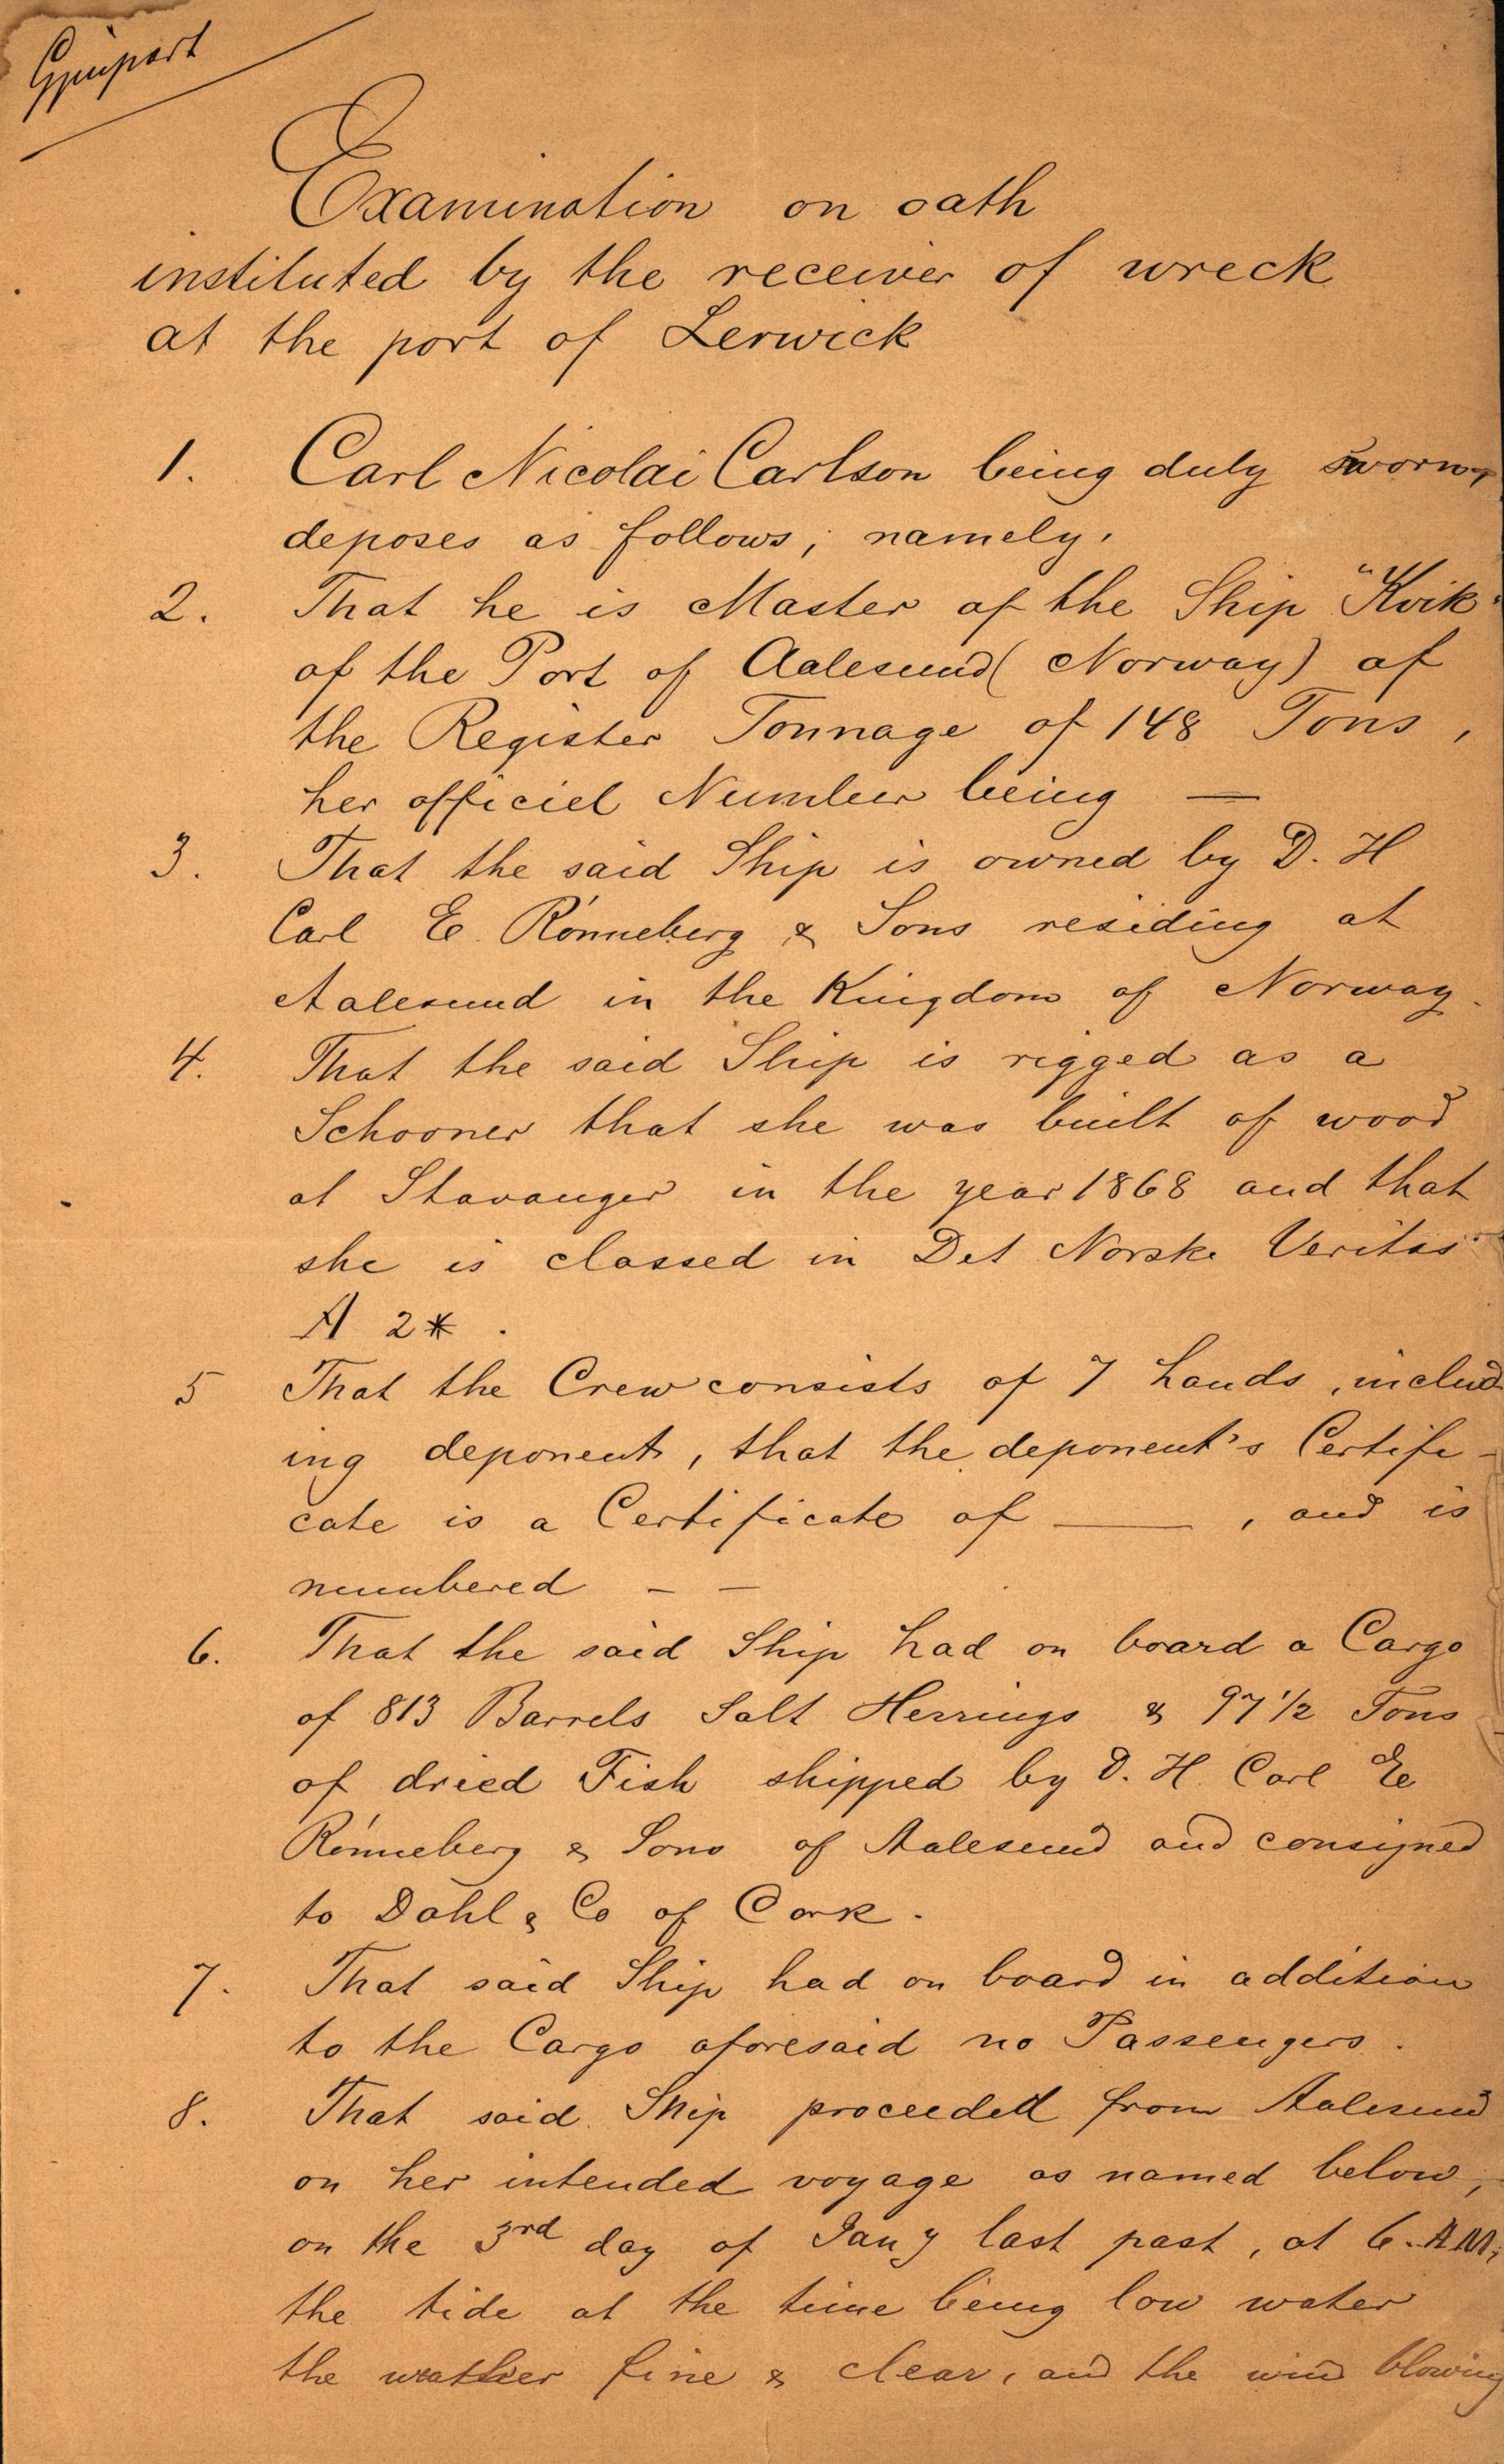 Gjenpart
Examination on oath
instituted by the receiver of wreck
at the port of Lerwick
1. Carl Nicolai Carlson being duly sworn,
deposes as follows; namely.
2. That he is Master of the Ship "Kvik"
of the Port of Aalesund (Norway) of
the Register Tonnage of 148 Tons,
her officiel Number being —
3. That the said Ship is owned by D. H
Carl E. Rønneberg & Sons residing at
Aalesund in the Kingdom of Norway.
4. That the said Ship is rigged as a
Schooner that she was built of wood
at Stavanger in the year 1868 and that
she is classed in Det Norske Veritas
A 2* .
5 That the Crew consists of 7 hands, includ
ing deponent, that the deponent's Certifi-
cate is a Certificate of ——, and is
numbered — —
6. That the said Ship had on board a Cargo
of 813 Barrels Salt Herrings & 97 1/2 Tons
of dried Fish shipped by D. H. Carl E
Rønneberg & Sons of Aalesund and consigned
to Dahl & Co of Cork.
7. That said Ship had on board in addition
to the Cargo aforesaid no Passengers.
8. That said Ship proceeded from Aalesund
on her intended voyage as named below,
on the 3rd day of Jany last past, at 6. AM;
the tide at the time being low water
the weather fine & clear, and the wind blowing